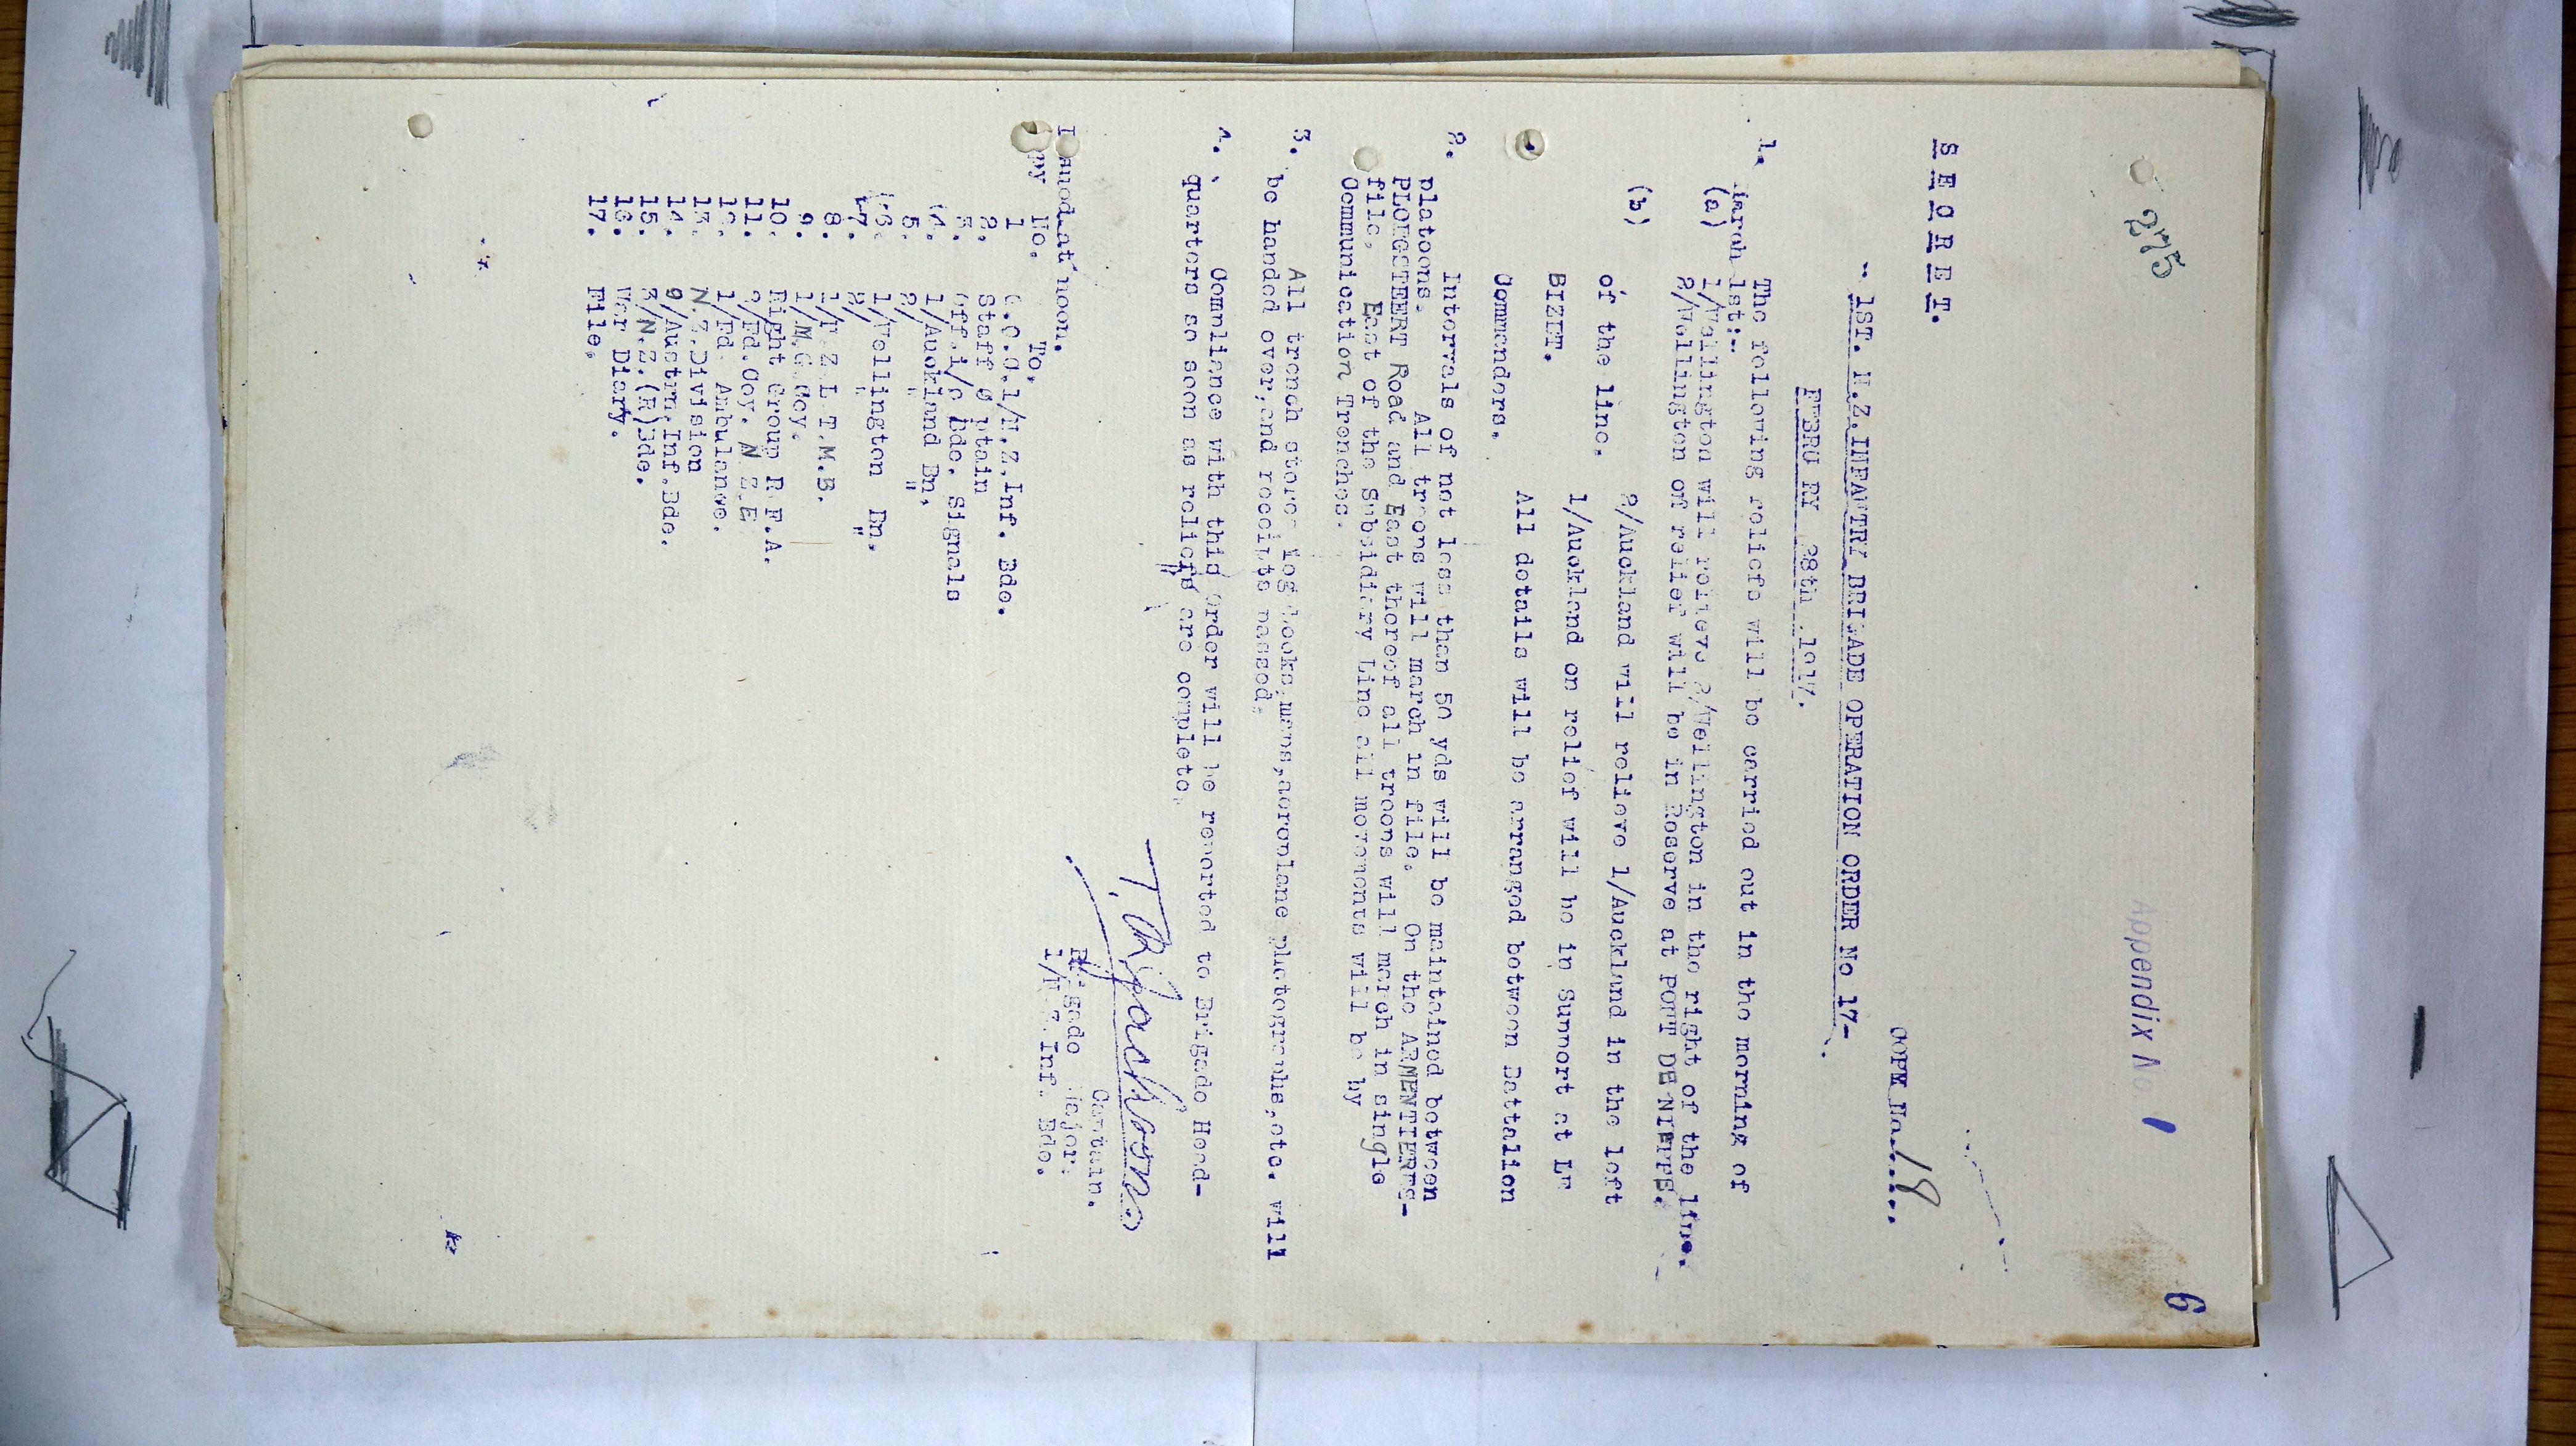 275
Appendix No. 1
6
COPY No....18....
S E C R E T.
1ST. N.Z.INFANTRY BRIGADE OPERATION ORDER No 17-
FEBRU RY 28th 1917.
1. The following reliefs will be carried out in the morning of
March 1st:-
(a) 1/Wellington will relieve 2/Wellington in the right of the line.
2/Wellington on relief will be in Reserve at PONT DE NIEPPE.
(b) 2/Auckland will relieve 1/Auckland in the left
of the line.
1/Auckland on relief will be in Support at LE
BIZET.
All details will be arranged between Battalion
Commanders.
2. Intervals of not less than 50 yds will be maintained between
platoons. All troops will march in file. On the ARMENTIERES-
PLOEGSTEERT Road and East thereof all troops will march in single
file. East of the Subsidiary Line all movements will be by
Communication Trenches.
3. All trench stores log books, maps, aeroplane photographs, etc. will
be handed over, and receipts passed.
4. Compliance with this order will be reported to Brigade Head-
quarters so soon as reliefs are complete.
Captain.
Brigade Major.
1/N.Z.Inf. Bde.
Issued at noon.
Copy No. To,
1 G.O.C.1/N.Z.Inf. Bde.
2. Staff Captain
3. Off.i/c Bde. Signals
4. 1/Auckland Bn.
5. 2/ " "
6. 1/Wellington Bn.
7. 2/ " "
8. 1/N.Z.L.T.M.B.
9. 1/M.G.Coy.
10. Right Group R.F.A.
11. 2/Fd.Coy. N.Z.E
12. 1/Fd. Ambulance.
13. N.Z.Division
14. 9/Austrn.Inf.Bde.
15. 3/N.Z.(R)Bde.
16. War Diary.
17. File.